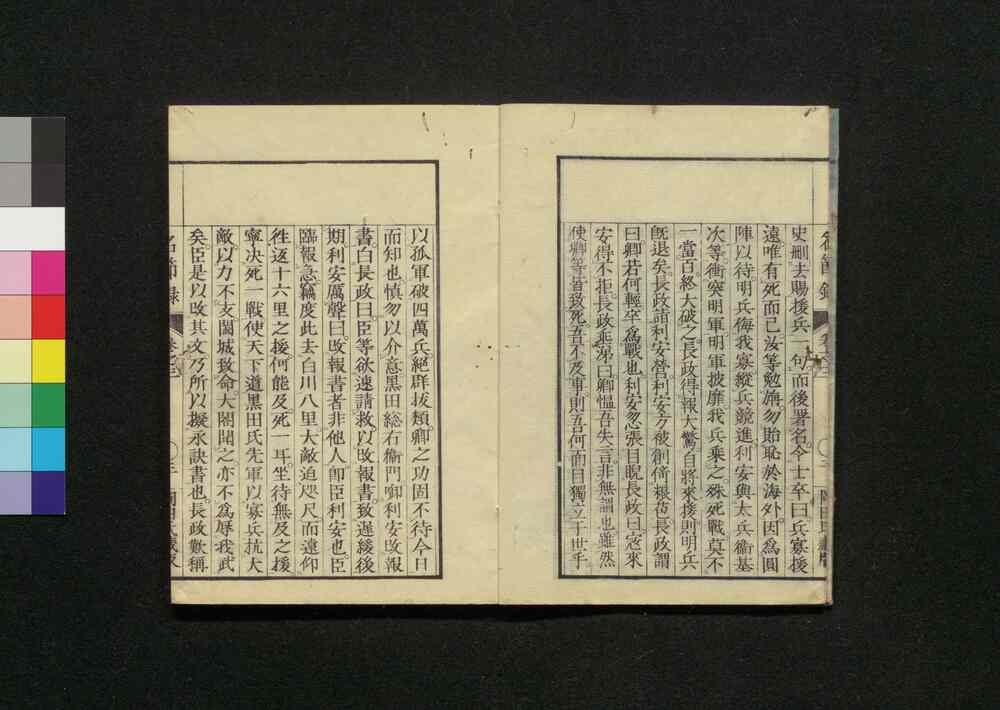 史刪去賜援兵一句而後署名令士卒曰兵寡援
遠唯有死而已汝等勉旃勿貽恥於海外因爲圓
陣以待明兵侮我寡縱兵競進利安與太兵衞基
次等衝突明軍明軍披靡我兵乘之殊死戰莫不
一當百終大破之長政得報大驚自將來援則明兵
既退矣長政詣利安營利安方被創倚
曰卿若何輕卒爲戰也利安忽張目睨長政曰寇來
安得不拒長政 曰卿慍吾失言非無謂也雖然
使卿等皆致死吾不及事則吾何面目獨立于世乎
以孤軍破四萬兵絕群拔類卿之功固不待今日
而知也愼勿以介意黑田総右衞門啣利安改報
書白長政曰臣等欲速請救以改報書致遲緩後
期利安厲聲曰改報書者非他人卽臣利安也臣
臨報急竊度此去白川八里大敵迫咫尺而遠仰
往返十六里之援何能及死一耳坐待無及之援
寧決死一戰使天下道黑田氏先軍以寡兵抗大
敵以力不支闔城致命大閤聞之亦不爲辱我武
矣臣是以改其文乃所以擬永訣書也長政歎稱
名節錄
卷之三